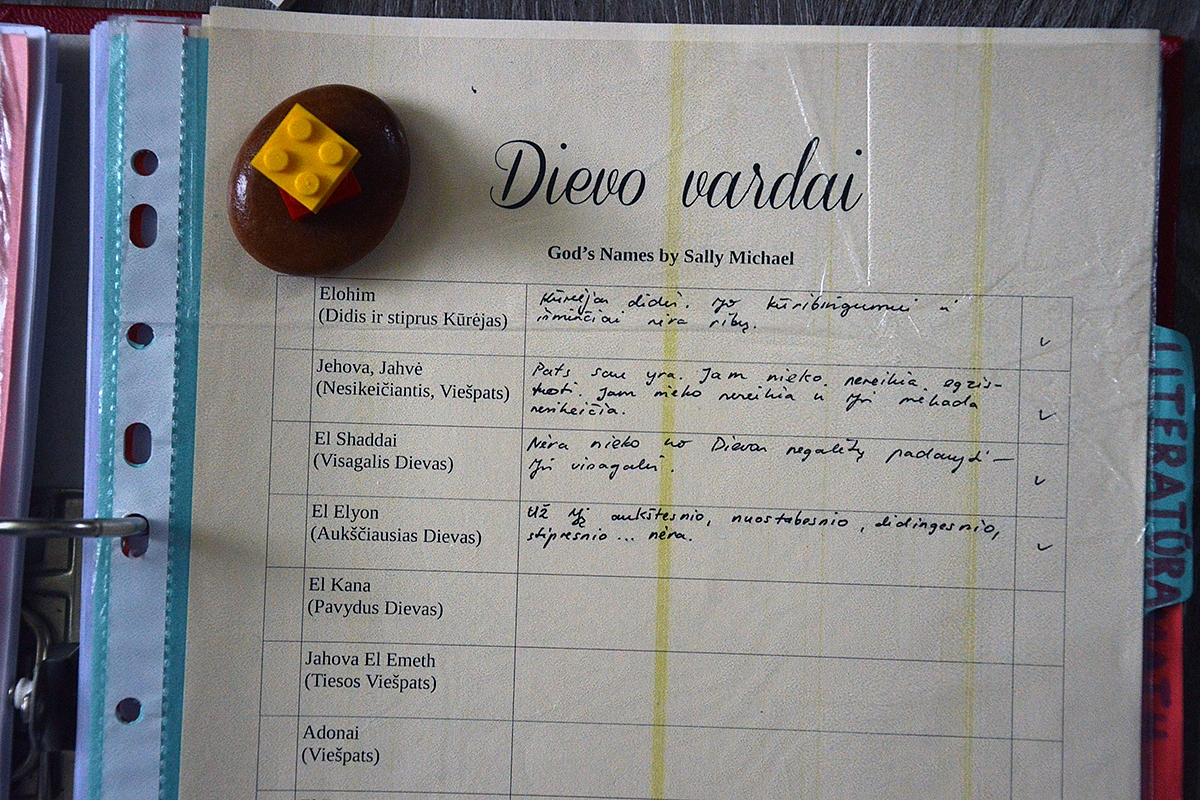 Dievo vardai
God's Names by Sally Michael
Elohim
(Didis ir stiprus Kūrėjas)
Kūrėjas didis. Jo kūribingumui ir
išminčiai nėra ribų.
Jehova, Jahvė
(Nesikeičiantis, Viešpats)
Pats sau yra. Jam nieko nereikia egzis-
tuoti. Jam nieko nereikia ir Jis niekada
nesikeičia.
El Shaddai
(Visagalis Dievas)
Nėra nieko ko Dievas negalėtų padaryti –
Jis visagalis.
El Elyon
(Aukščiausias Dievas)
Už Jį aukštesnio, nuostabesnio, didingesnio,
stipresnio... nėra.
El Kana
(Pavydus Dievas)
Jahova El Emeth
(Tiesos Viešpats)
Adonai
(Viešpats)
LITERATŪRA